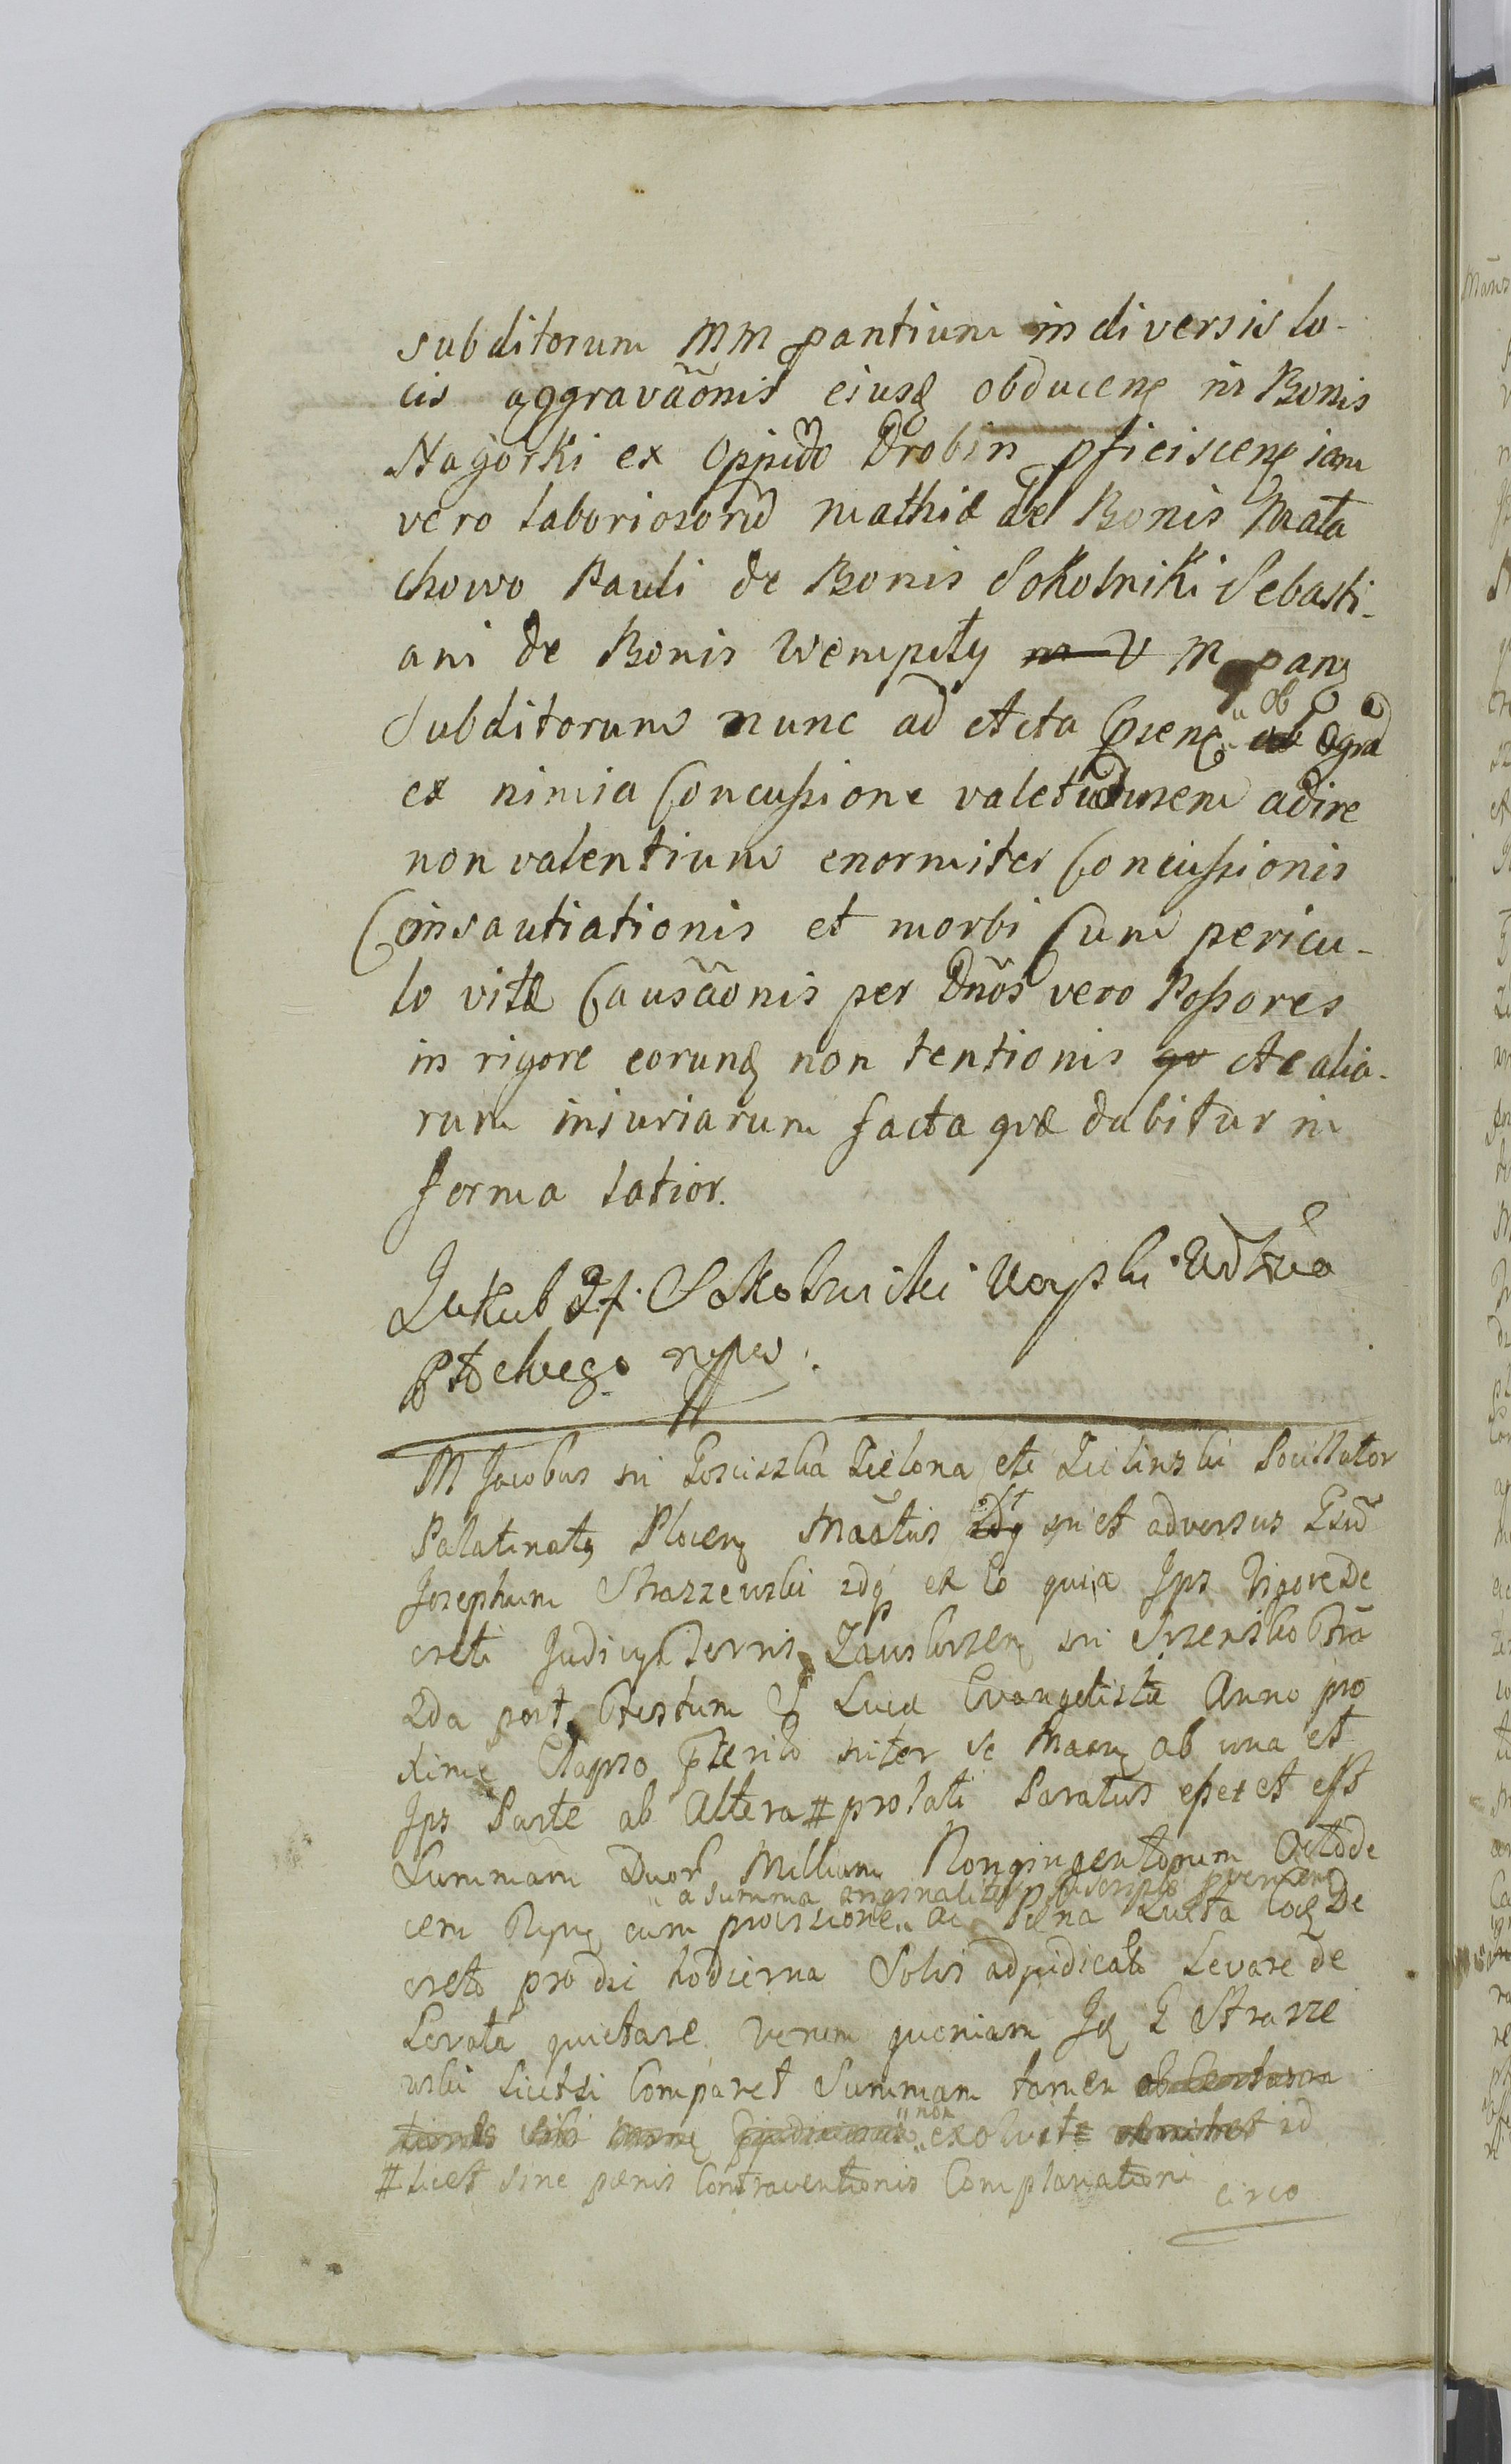 subditorum MM pantium in diversis lo-
cis aggravãonis eiusq obducenę in Bonis
Nagórki ex Oppido Drobin pficiscenę iam
vero laboriosorũ Mathiæ de Bonis Mała
chowo Pauli de Bonis Sokolniki Sebasti-
ani de Bonis Wempiły M panę
subditorum nunc ad Acta Psenę ob
ex nimia Concussione valetudinem adire
non valentium enormiter Concussionis
Consautiationis et morbi Cum pericu-
lo vitæ Causãonis per Dños vero Possores
in rigore eorunq non tentionis Ac alia-
rum iniuriarum facta quæ dabitur in
forma latior.
Jakub Sokolnicki Woyski
mpw
M Jacobus in Gosciszka Zielona etc Zielinski Pocillator
Palatinatq Plocenę Maãtus in et adversus Gsũ
Josephum Strarzewski 2dę ex Eo quia Ips Vigore De
creti Judicy Terris Zawskrzenę in Szrensko Fria
2da post Festum S Lucæ Evangelistæ Anno pro
xime Elapso pterito inter se Maanę ab una et
Ips Parte ab Altera # prolati Paratus esset et est
Summam Duorũ Millium Nongingentorum Octode
a summa originali
cem cum provisione ac Pæna Juxta Eoq De
creto pro die hodierna Solvi adjudicato Levare de
Levata quietare Verum quoniam Jq G Strarze
wski licetsi Comparet Summam tamen
non exolvit id
# licet sine pænis Contraventionis Complanationi
circo